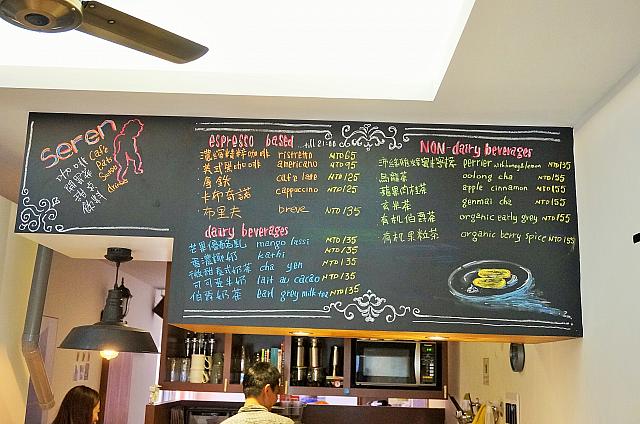 Seren
咖啡 Cafe
espresso based
ristretto NTD 65
美式黑咖啡 americano NTD 95
拿鐵 cafe latte NTD 125
卡布奇諾 cappuccino NTD 125
布里夫 breve NTD 135
dairy beverages
芒果優酪乳 mango lassi NTD 135
kathi NTD 135
微甜泰式奶茶 cha yen NTD 135
可可亞牛奶 lait au cacao NTD 135
伯爵奶茶 earl grey milk tea NTD 135
NON-dairy beverages
perrier with honey & lemon NTD 135
烏龍茶 oolong cha NTD 155
蘋果肉桂茶 apple cinnamon NTD 155
玄米茶 genmai cha NTD 155
有机伯爵茶 organic early grey NTD 155
有机果粒茶 organic berry spice NTD 155